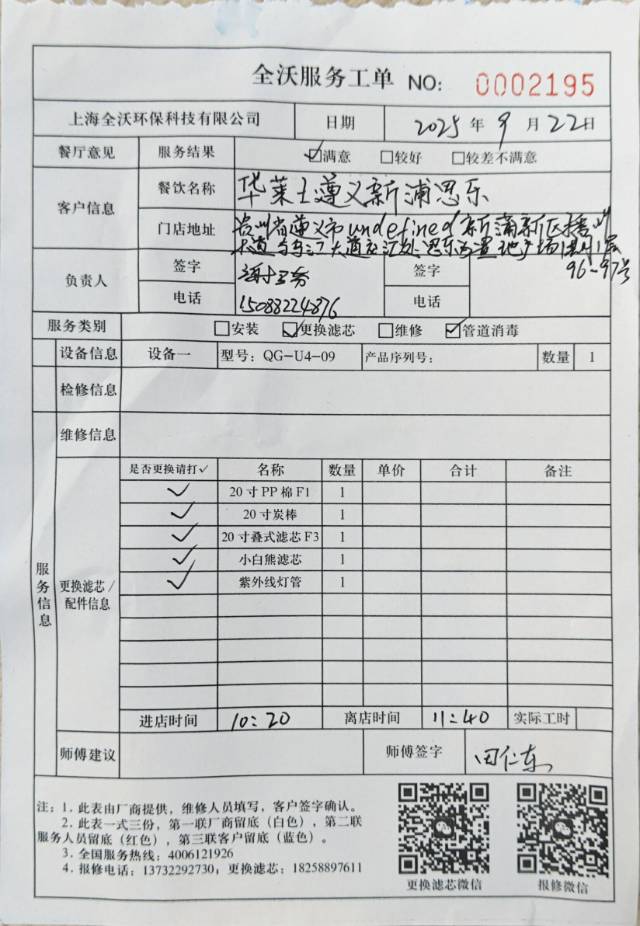 全沃服务工单 NO: 0002195
上海全沃环保科技有限公司 日期 2025年9月22日
餐厅意见 服务结果 ☑满意 □较好 □较差不满意
客户信息 餐饮名称 华莱士遵义新浦思乐
门店地址 贵州省遵义市undefined新蒲新区播州
大道与乌江大道交汇处思乐 地 场 1层
96-97号
负责人 签字 签字
电话 15088224876 电话
服务类别 □安装 ☑更换滤芯 □维修 ☑管道消毒
设备信息 设备一 型号: QG-U4-09 产品序列号: 数量 1
检修信息
维修信息
服务信息
更换滤芯/配件信息
是否更换请打✓ 名称 数量 单价 合计 备注
✓ 20寸PP棉F1 1
✓ 20寸炭棒 1
✓ 20寸叠式滤芯F3 1
✓ 小白熊滤芯 1
✓ 紫外线灯管 1
进店时间 10:20 离店时间 11:40 实际工时
师傅建议 师傅签字 田仁东
注: 1. 此表由厂商提供，维修人员填写，客户签字确认。
2. 此表一式三份，第一联厂商留底（白色），第二联
服务人员留底（红色），第三联客户留底（蓝色）。
3. 全国服务热线: 4006121926
4. 报修电话: 13732292730; 更换滤芯: 18258897611
更换滤芯微信 报修微信